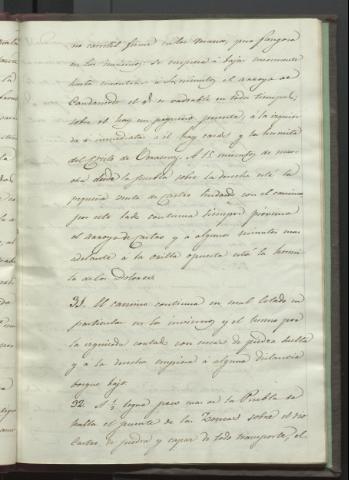 no camina firme en los llanos, pero fangoso
en los inviernos: se empieza à bajar
hasta encontrar à 5 minutos el arroyo de
el qe es vadeable en todo tiempo,
sobre el hay un pequeño puente, à la izquier
da è inmediata à el hay casas y la hermita
del Cristo de A 15 minutos de mar
cha desde la puebla sobre la derecha está la
pequeña venta de Castro lindando con el camino
por este lado continua siempre proximo
el arroyo de Castro y à algunos minutos mas
adelante à la orilla opuesta está la hermi
ta de los Dolores
31. El camino continua en mal estado en
particular en los inviernos y el terreno por
la izquierda cortado con cercas de piedra suelta
y à la derecha empieza à alguna distancia
bosque bajo.
32. A ½ legua poco mas de la Puebla se
halla el puente de las sobre el rio
Castro de piedra y capaz de todo transporte, el